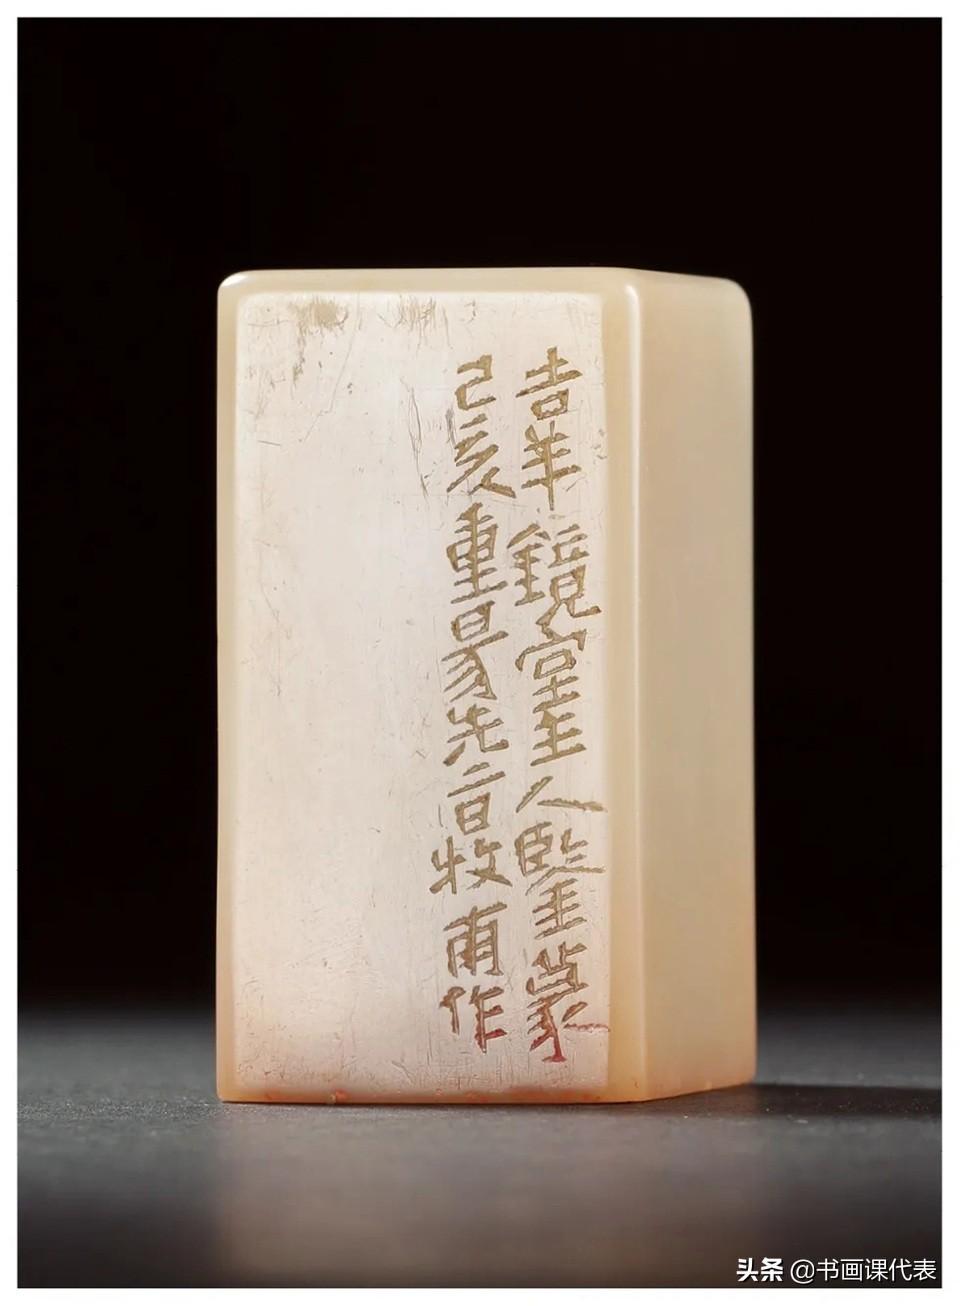 吉羊鏡室主人鑒
己亥重昜先二日牧甫作
头条 @书画课代表